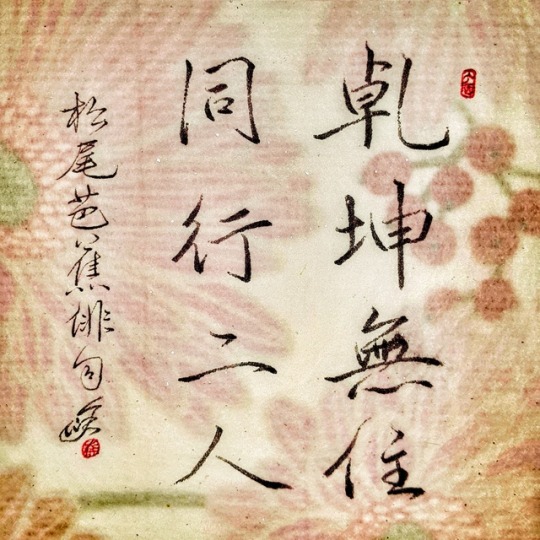 乹坤無住
同行二人
松尾芭蕉俳句